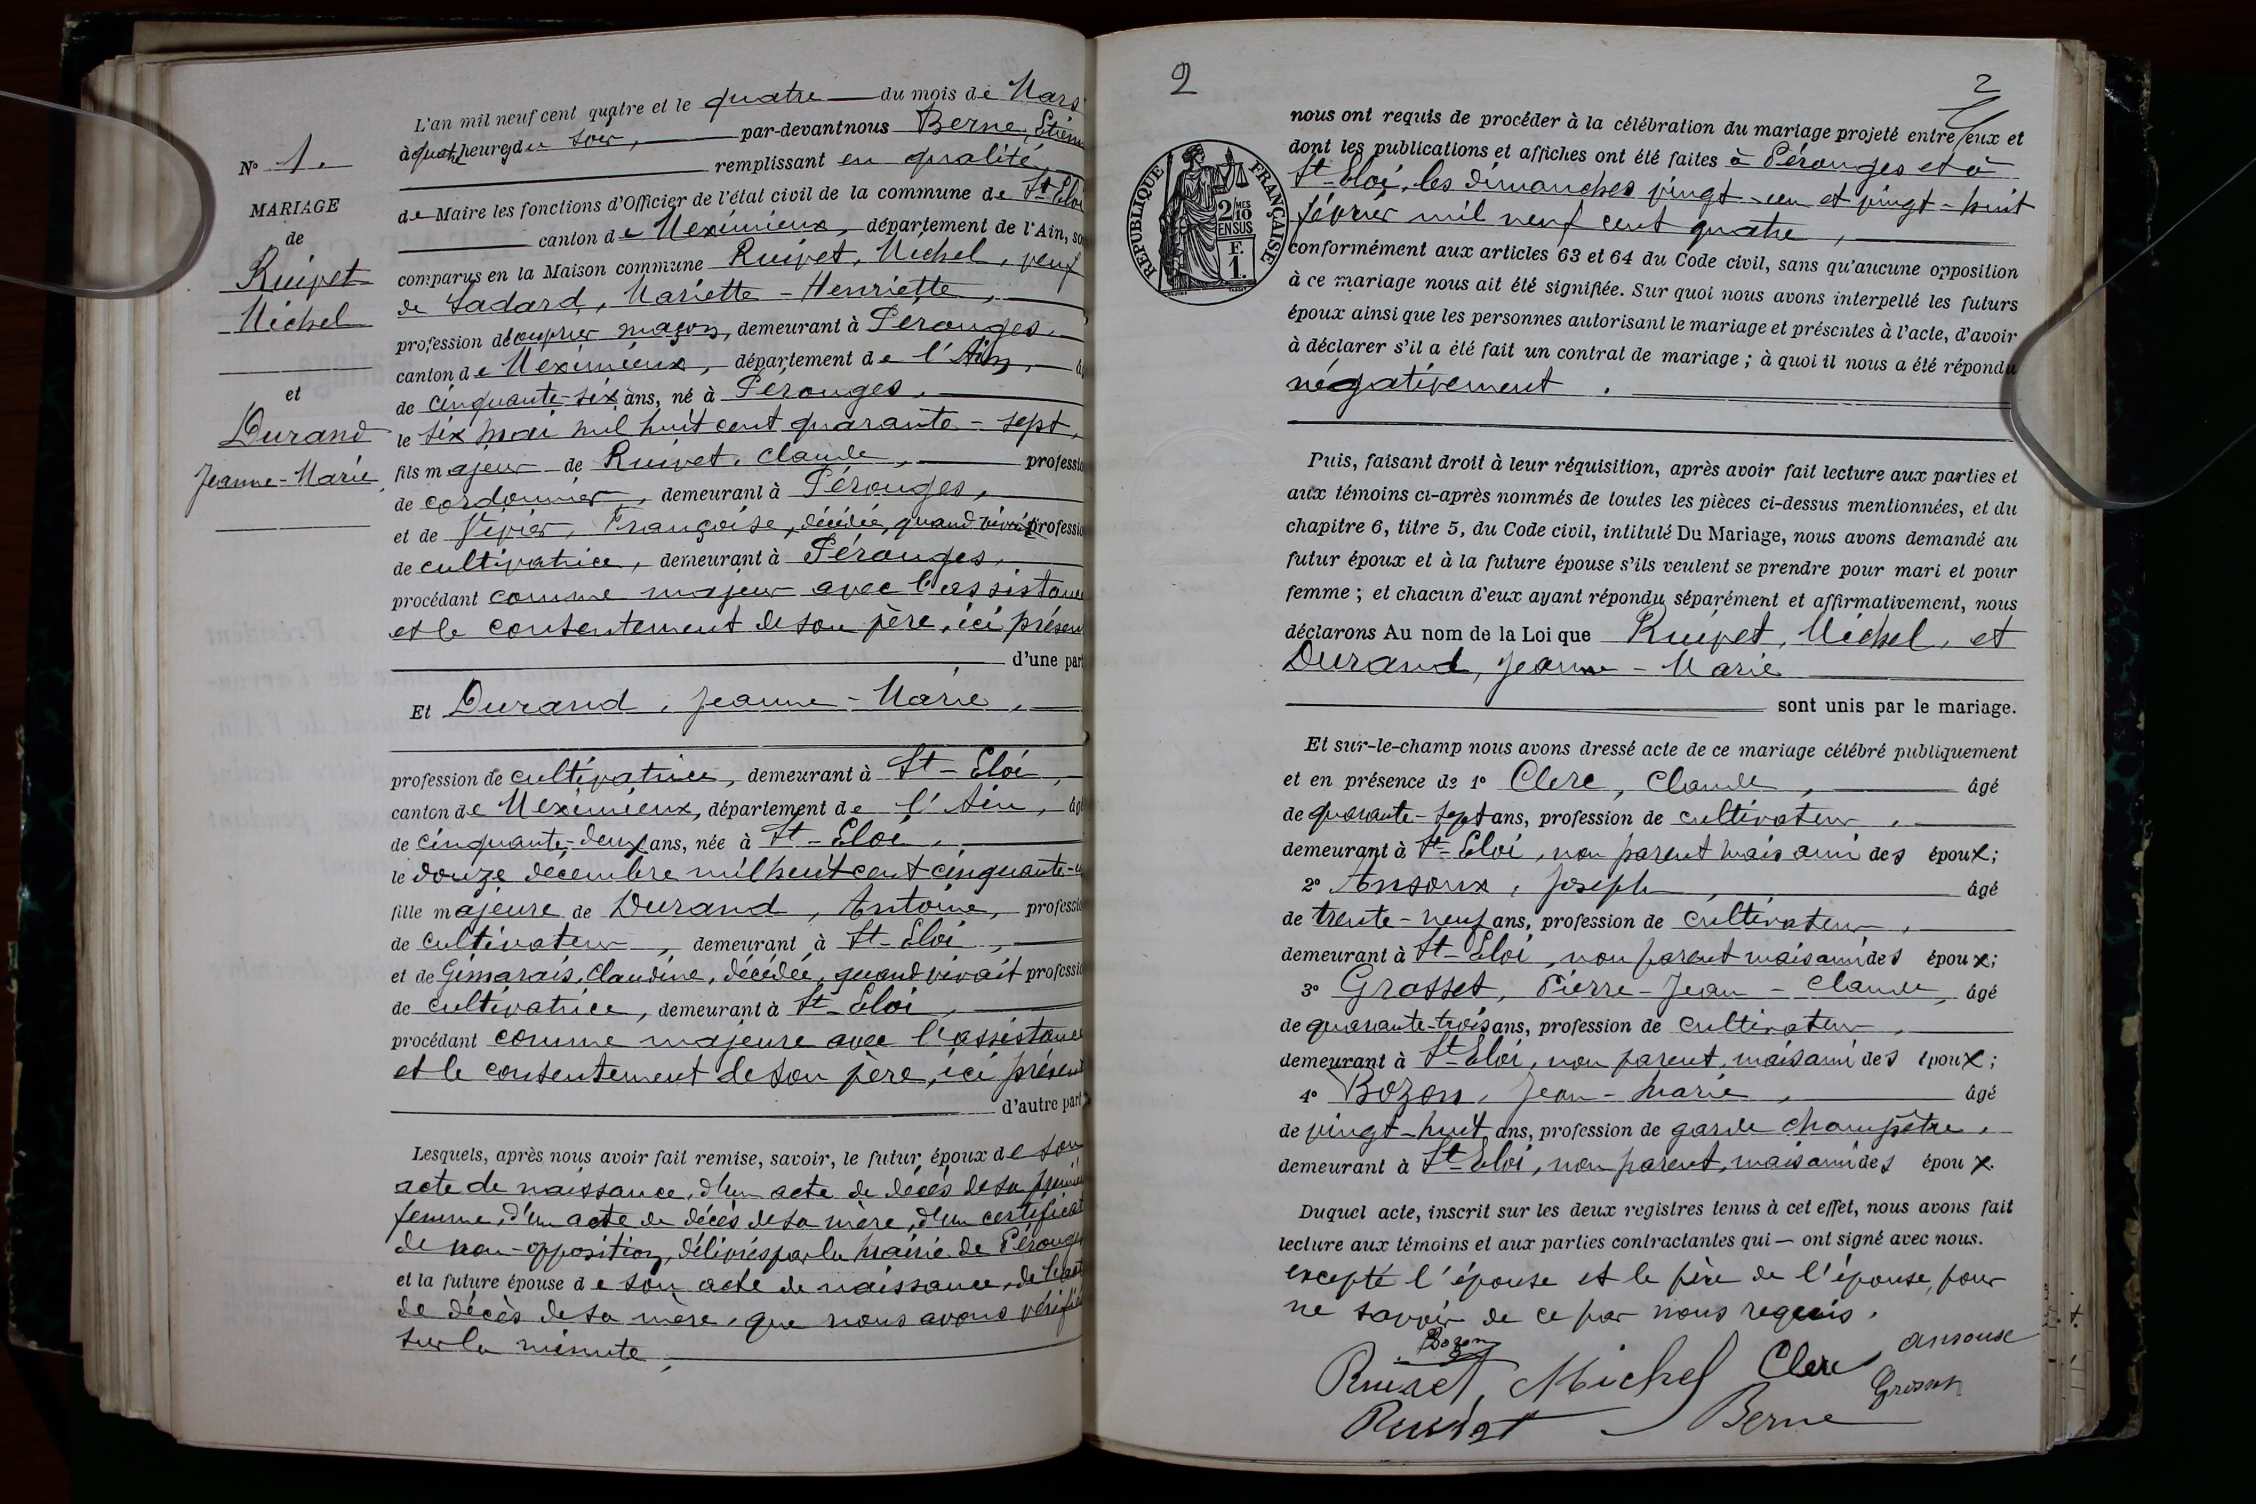 N° 1.
MARIAGE
de
Ruivet
Michel
et
Durand
Jeanne-Marie
L'an mil neuf cent quatre et le quatre du mois de Mars
à quatre heures du soir, par-devant nous Berne, Etienn
remplissant en qualité
de Maire les fonctions d'Officier de l'état civil de la commune de St-Eloi
canton de Meximieux, département de l'Ain, so
comparus en la Maison commune Ruivet, Michel, veuf
de Ladard, Mariette-Henriette,
profession d'ouvrier maçon, demeurant à Pérouges,
canton de Meximieux, département de l'Ain, â
de cinquante-six ans, né à Pérouges,
le six mai mil huit cent quarante-sept,
fils majeur de Ruivet, Claude, professio
de cordonnier, demeurant à Pérouges,
et de Françoise, décédée, quand vivait professio
de cultivatrice, demeurant à Pérouges,
procédant comme majeur avec l'assistance
et le consentement de son père, ici présent
d'une part
Et Durand, Jeanne-Marie,
profession de cultivatrice, demeurant à St-Eloi,
canton de Meximieux, département de l'Ain, âgé
de cinquante-deux ans, née à St-Eloi,
le douze décembre mil huit cent cinquante-u
fille majeure de Durand, Antoine, professio
de cultivateur, demeurant à St-Eloi,
et de Gimarais, Claudine, décédée, quand vivait professio
de cultivatrice, demeurant à St-Eloi,
procédant comme majeure avec l'assistance
et le consentement de son père, ici présent
d'autre part
Lesquels, après nous avoir fait remise, savoir, le futur époux de son
acte de naissance, d'un acte de décès de sa premiè
femme, d'un acte de décès de sa mère, d'un certificat
de non-opposition, délivrés par la mairie de Pérouges
et la future épouse de son acte de naissance, de l'acte
de décès de sa mère, que nous avons vérifiés
sur la minute,
2
2
RÉPUBLIQUE FRANÇAISE
2/MES
10
EN SUS
F.
1.
nous ont requis de procéder à la célébration du mariage projeté entre eux et
dont les publications et affiches ont été faites à Pérouges et à
St-Eloi, les dimanches vingt-un et vingt-huit
février mil neuf cent quatre,
conformément aux articles 63 et 64 du Code civil, sans qu'aucune opposition
à ce mariage nous ait été signifiée. Sur quoi nous avons interpellé les futurs
époux ainsi que les personnes autorisant le mariage et présentes à l'acte, d'avoir
à déclarer s'il a été fait un contrat de mariage ; à quoi il nous a été répondu
négativement.
Puis, faisant droit à leur réquisition, après avoir fait lecture aux parties et
aux témoins ci-après nommés de toutes les pièces ci-dessus mentionnées, et du
chapitre 6, titre 5, du Code civil, intitulé Du Mariage, nous avons demandé au
futur époux et à la future épouse s'ils veulent se prendre pour mari et pour
femme ; et chacun d'eux ayant répondu séparément et affirmativement, nous
déclarons Au nom de la Loi que Ruivet, Michel, et
Durand, Jeanne-Marie
sont unis par le mariage.
Et sur-le-champ nous avons dressé acte de ce mariage célébré publiquement
et en présence de 1° Clerc, Claude, âgé
de quarante-sept ans, profession de cultivateur,
demeurant à St-Eloi, non parent mais ami des époux;
2° Ansoux, Joseph, âgé
de trente-neuf ans, profession de cultivateur,
demeurant à St-Eloi, non parent mais ami des époux;
3° Grosset, Pierre-Jean-Claude, âgé
de quarante-trois ans, profession de cultivateur,
demeurant à St-Eloi, non parent, mais ami des époux;
4° Bozon, Jean-Marie, âgé
de vingt-huit ans, profession de garde champêtre,
demeurant à St-Eloi, non parent, mais ami des époux.
Duquel acte, inscrit sur les deux registres tenus à cet effet, nous avons fait
lecture aux témoins et aux parties contractantes qui — ont signé avec nous.
excepté l'épouse et le père de l'épouse, pour
ne savoir de ce par nous requis.
Bozon
Ruivet, Michel Clerc ansouse
Ruivet Berne